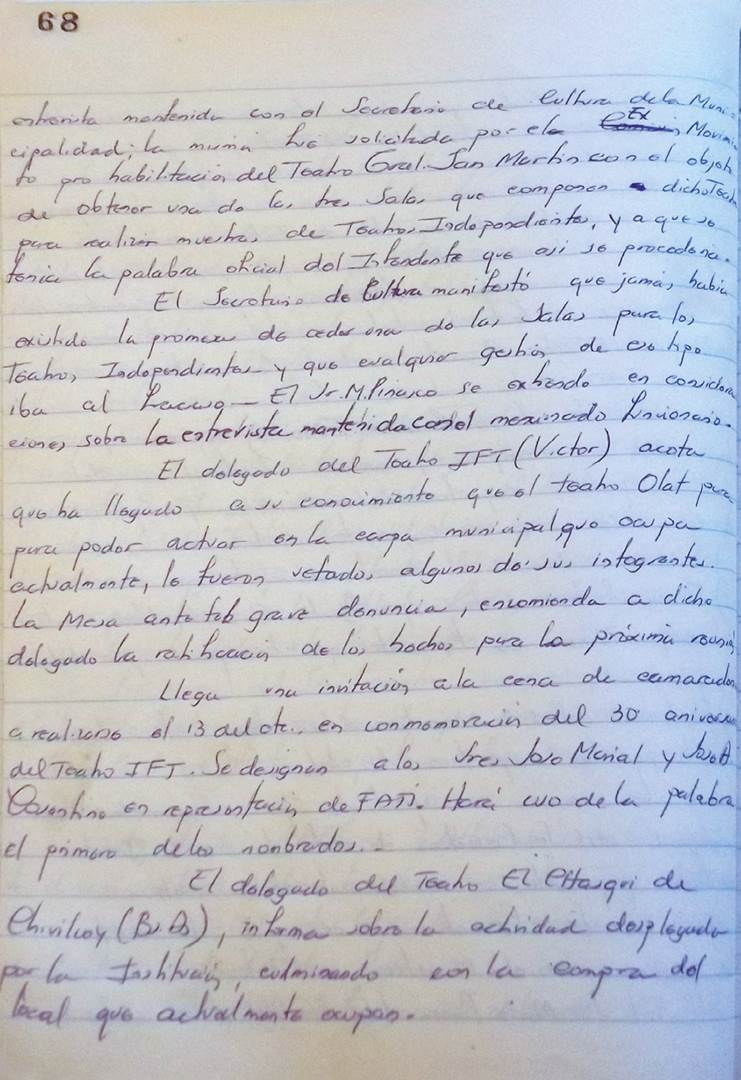 68
entrevista mantenida con el Secretario de Cultura de la Muni-
cipalidad; la misma fué solicitada por el Ex Movimien
to pro habilitación del Teatro Gral. San Martín con el objeto
de obtener una de las tres Salas que componen dicho Teatro
para realizar muestras de Teatros Independientes, ya que se
tenía la palabra oficial del Intendente que así se procedería.
El Secretario de Cultura manifestó que jamás había
existido la promesa de ceder una de las Salas para los
Teatros Independientes y que cualquier gestión de ese tipo
iba al fracaso - El Sr. M. Pinasco se extiende en considera
ciones sobre la entrevista mantenida con el mencionado funcionario.
El delegado del Teatro IFT (Victor) acota
que ha llegado a su conocimiento que el teatro Olat para
para poder actuar en la carpa municipal que ocupa
actualmente, le fueron vetados algunos de sus integrantes.
La Mesa ante tal grave denuncia, encomienda a dicho
delegado la ratificación de los hechos para la próxima reunión
Llega una invitación a la cena de camaradería
a realizarse el 13 del cte., en conmemoración del 30 aniversario
del Teatro IFT. Se designan a los Sres José Marial y
en representación de FATI. Hará uso de la palabra
el primero de los nombrados.-
El delegado del Teatro El Chasqui de
Chivilcoy (Bs. As), informa sobre la actividad desplegada
por la Institución, culminando con la compra del
local que actualmente ocupan.